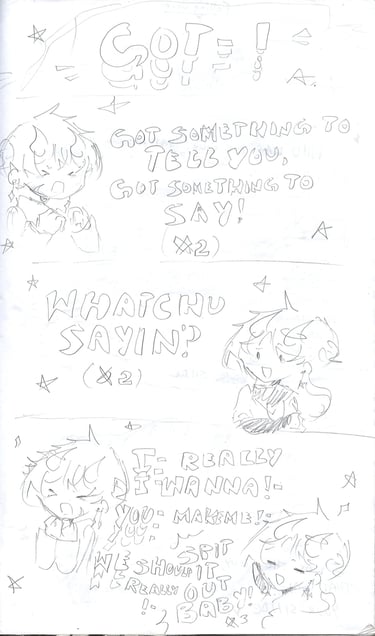 GOT-!
GOT SOMETHING TO
TELL YOU,
GOT SOMETHING TO
SAY!
(x2)
WHATCHU
SAYIN'?
(x2)
I- REALLY
I-WANNA!-
YOU- MAKE ME!-
YOU-
SPIT
IT
OUT
BABY!
x3
WE SHOULD
WE REALLY
!-